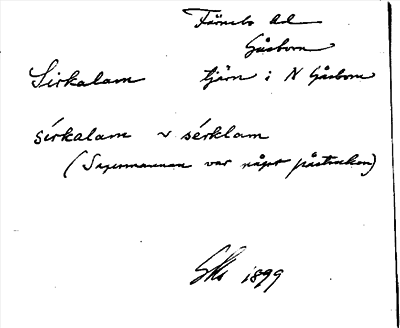 Färnebo hd
Gåsborn
Sirkalam tjärn i N Gåsborn
sírkalam ~ sérklam
(Sagesmannen var något påstruken)
1899